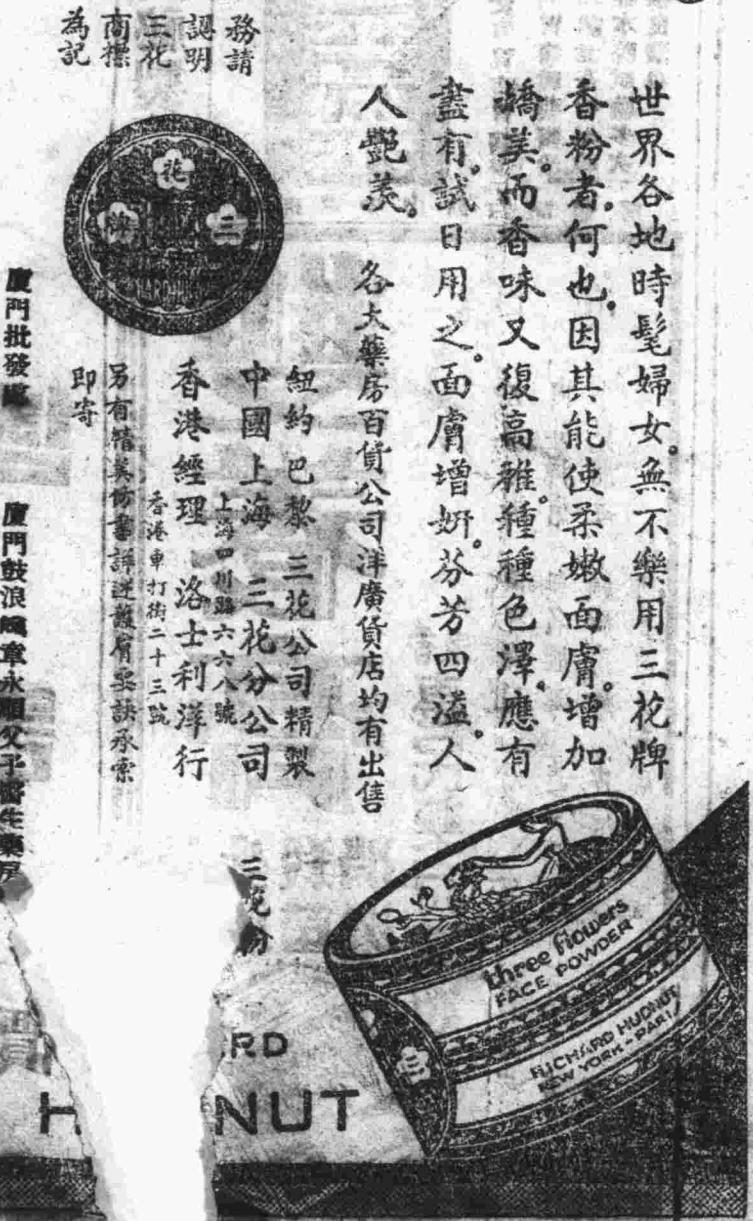 世界各地時髦婦女。無不樂用三花牌
香粉者。何也。因其能使柔嫩面膚。增加
嬌美。而香味又復高雅。種種色澤。應有
盡有。試日用之。面膚增妍。芬芳四溢。人
人艷羨。
各大藥房百貨公司洋廣貨店均有出售
紐約 巴黎 三花公司精製
中國上海 三花分公司
上海四川路六六八號
香港經理 洛士利洋行
香港車打街二十三號
另有精美仿書詳述護膚要訣承索
即寄
務請
認明
三花
商標
為記
三
花
牌
廈門批發處
廈門鼓浪嶼章永順父子醫生藥房
三花粉
three flowers
FACE POWDER
RICHARD HUDNUT
NEW YORK - PARIS
RD
H NUT